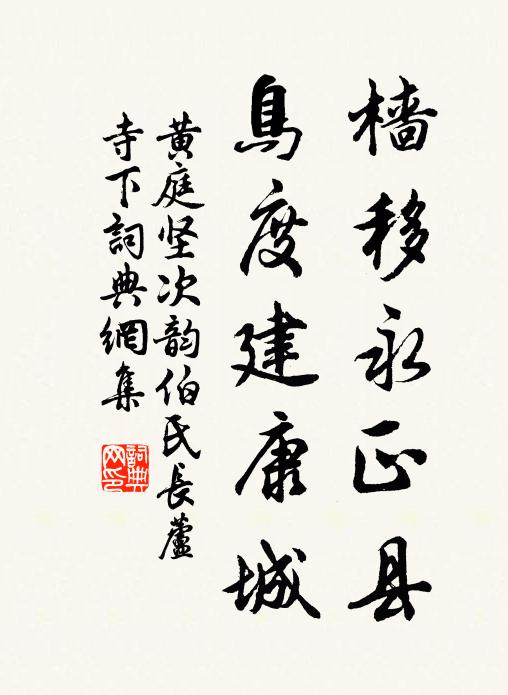 樯移永正县
鳥度建康城
黄庭坚次韵伯氏長蘆
寺下詞典網集
詞典网印